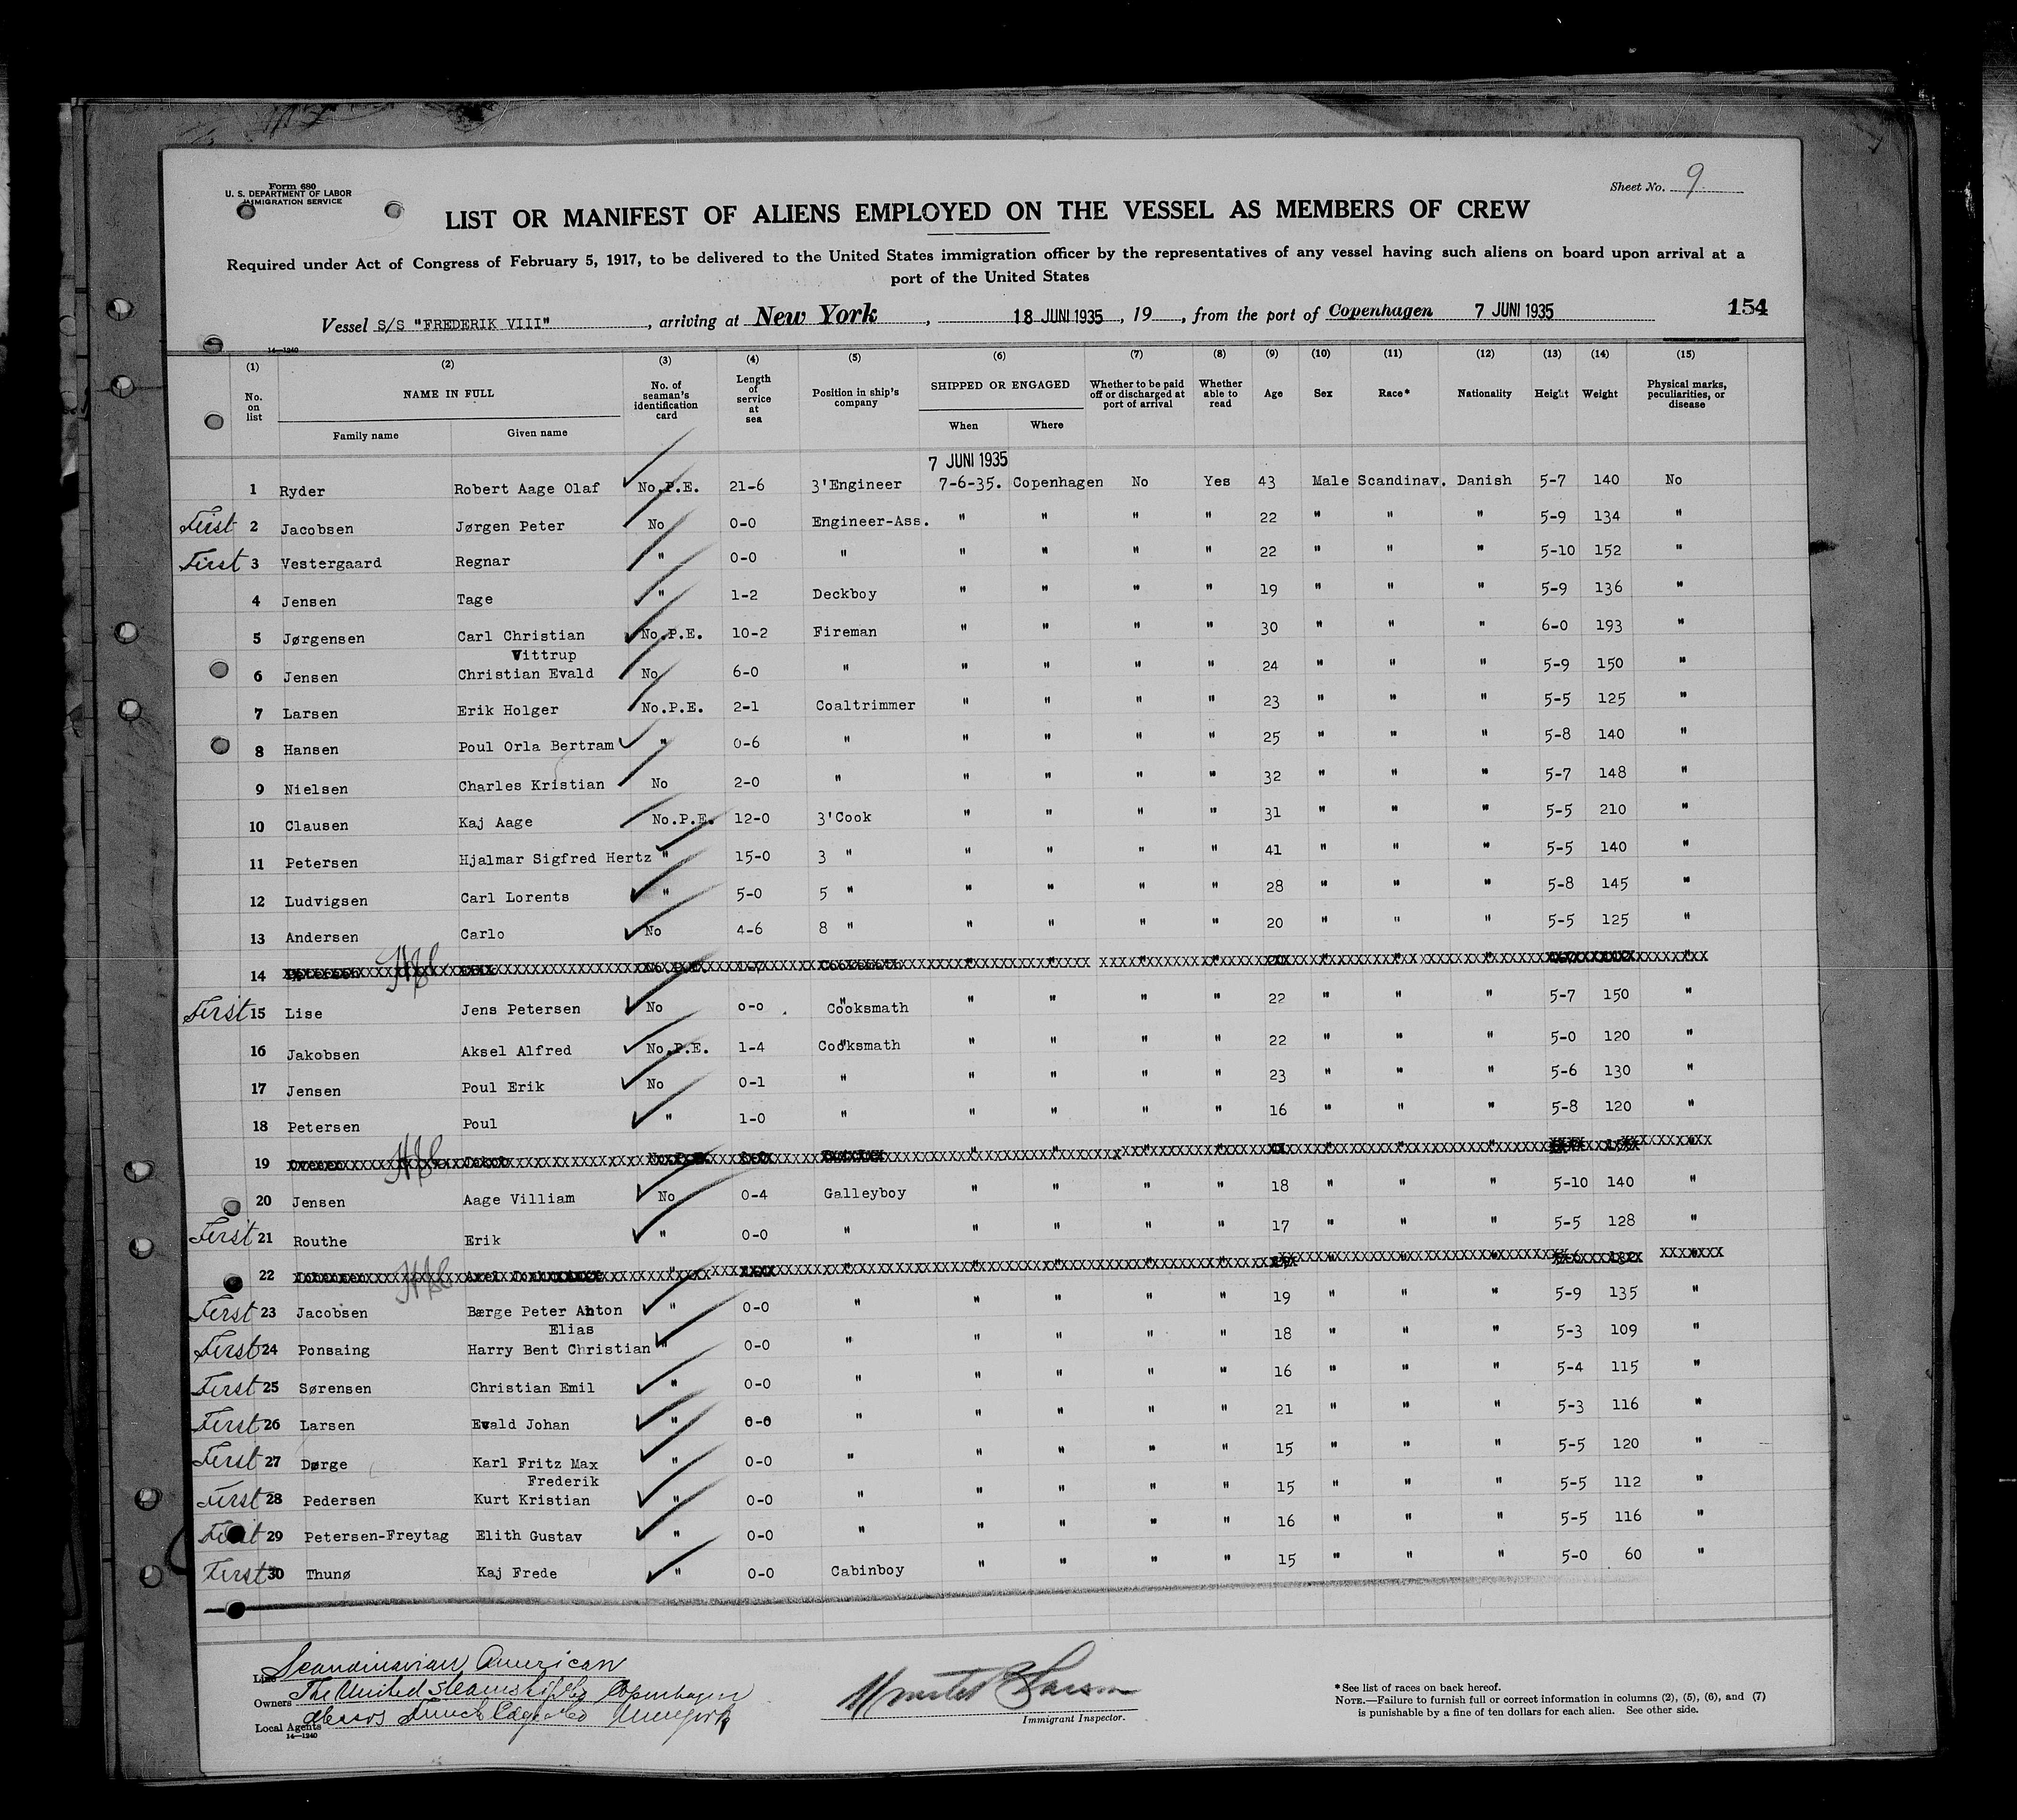 Form 680
U. S. DEPARTMENT OF LABOR
IMMIGRATION SERVICE
Sheet No. 9
LIST OR MANIFEST OF ALIENS EMPLOYED ON THE VESSEL AS MEMBERS OF CREW
Required under Act of Congress of February 5, 1917, to be delivered to the United States immigration officer by the representatives of any vessel having such aliens on board upon arrival at a
port of the United States
Vessel S/S "FREDERIK VIII", arriving at New York, 18 JUNI 1935, 19, from the port of Copenhagen 7 JUNI 1935 154
14—1240
(1) (2) (3) (4) (5) (6) (7) (8) (9) (10) (11) (12) (13) (14) (15)
No. on list NAME IN FULL Family name Given name No. of seaman's identification card Length of service at sea Position in ship's company SHIPPED OR ENGAGED When Where Whether to be paid off or discharged at port of arrival Whether able to read Age Sex Race* Nationality Height Weight Physical marks, peculiarities, or disease
7 JUNI 1935
1 Ryder Robert Aage Olaf No.P.E. 21-6 3'Engineer 7-6-35. Copenhagen No Yes 43 Male Scandinav. Danish 5-7 140 No
First 2 Jacobsen Jørgen Peter No 0-0 Engineer-Ass. " " " " 22 " " " 5-9 134 "
First 3 Vestergaard Regnar " 0-0 " " " " " 22 " " " 5-10 152 "
4 Jensen Tage " 1-2 Deckboy " " " " 19 " " " 5-9 136 "
5 Jørgensen Carl Christian No.P.E. 10-2 Fireman " " " " 30 " " " 6-0 193 "
Vittrup
6 Jensen Christian Evald No 6-0 " " " " " 24 " " " 5-9 150 "
7 Larsen Erik Holger No.P.E. 2-1 Coaltrimmer " " " " 23 " " " 5-5 125 "
8 Hansen Poul Orla Bertram " 0-6 " " " " " 25 " " " 5-8 140 "
9 Nielsen Charles Kristian No 2-0 " " " " " 32 " " " 5-7 148 "
10 Clausen Kaj Aage No.P.E. 12-0 3'Cook " " " " 31 " " " 5-5 210 "
11 Petersen Hjalmar Sigfred Hertz " 15-0 3 " " " " " 41 " " " 5-5 140 "
12 Ludvigsen Carl Lorents " 5-0 5 " " " " " 28 " " " 5-8 145 "
13 Andersen Carlo No 4-6 8 " " " " " 20 " " " 5-5 125 "
14
First 15 Lise Jens Petersen No 0-0 Cooksmath " " " " 22 " " " 5-7 150 "
16 Jakobsen Aksel Alfred No.P.E. 1-4 Cooksmath " " " " 22 " " " 5-0 120 "
17 Jensen Poul Erik No 0-1 " " " " " 23 " " " 5-6 130 "
18 Petersen Poul " 1-0 " " " " " 16 " " " 5-8 120 "
19
20 Jensen Aage Villiam No 0-4 Galleyboy " " " " 18 " " " 5-10 140 "
First 21 Routhe Erik " 0-0 " " " " " 17 " " " 5-5 128 "
22
First 23 Jacobsen Bærge Peter Anton " 0-0 " " " " " 19 " " " 5-9 135 "
Elias
First 24 Ponsaing Harry Bent Christian " 0-0 " " " " " 18 " " " 5-3 109 "
First 25 Sørensen Christian Emil " 0-0 " " " " " 16 " " " 5-4 115 "
First 26 Larsen Evald Johan " 0-0 " " " " " 21 " " " 5-3 116 "
First 27 Dørge Karl Fritz Max " 0-0 " " " " " 15 " " " 5-5 120 "
Frederik
First 28 Pedersen Kurt Kristian " 0-0 " " " " " 15 " " " 5-5 112 "
First 29 Petersen-Freytag Elith Gustav " 0-0 " " " " " 16 " " " 5-5 116 "
First 30 Thunø Kaj Frede " 0-0 Cabinboy " " " " 15 " " " 5-0 60 "
Line Scandinavian American
Owners The United Steamship Co Copenhagen
Local Agents Messrs Funch Edye & Co New York
14—1240
Immigrant Inspector.
*See list of races on back hereof.
NOTE.—Failure to furnish full or correct information in columns (2), (5), (6), and (7)
is punishable by a fine of ten dollars for each alien. See other side.